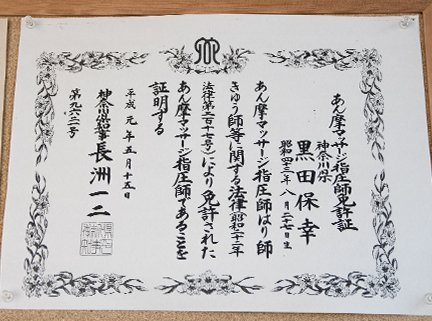 あん摩マッサージ指圧師免許証
神奈川県
黒田保幸
昭和四三年八月二十七日生
あん摩マッサージ指圧師はり師
きゅう師等に関する法律(昭和二十二年
法律第二百十七号)により免許された
あん摩マッサージ指圧師であることを
証明する
平成元年五月十五日
神奈川県知事 長洲一二
第九六二号